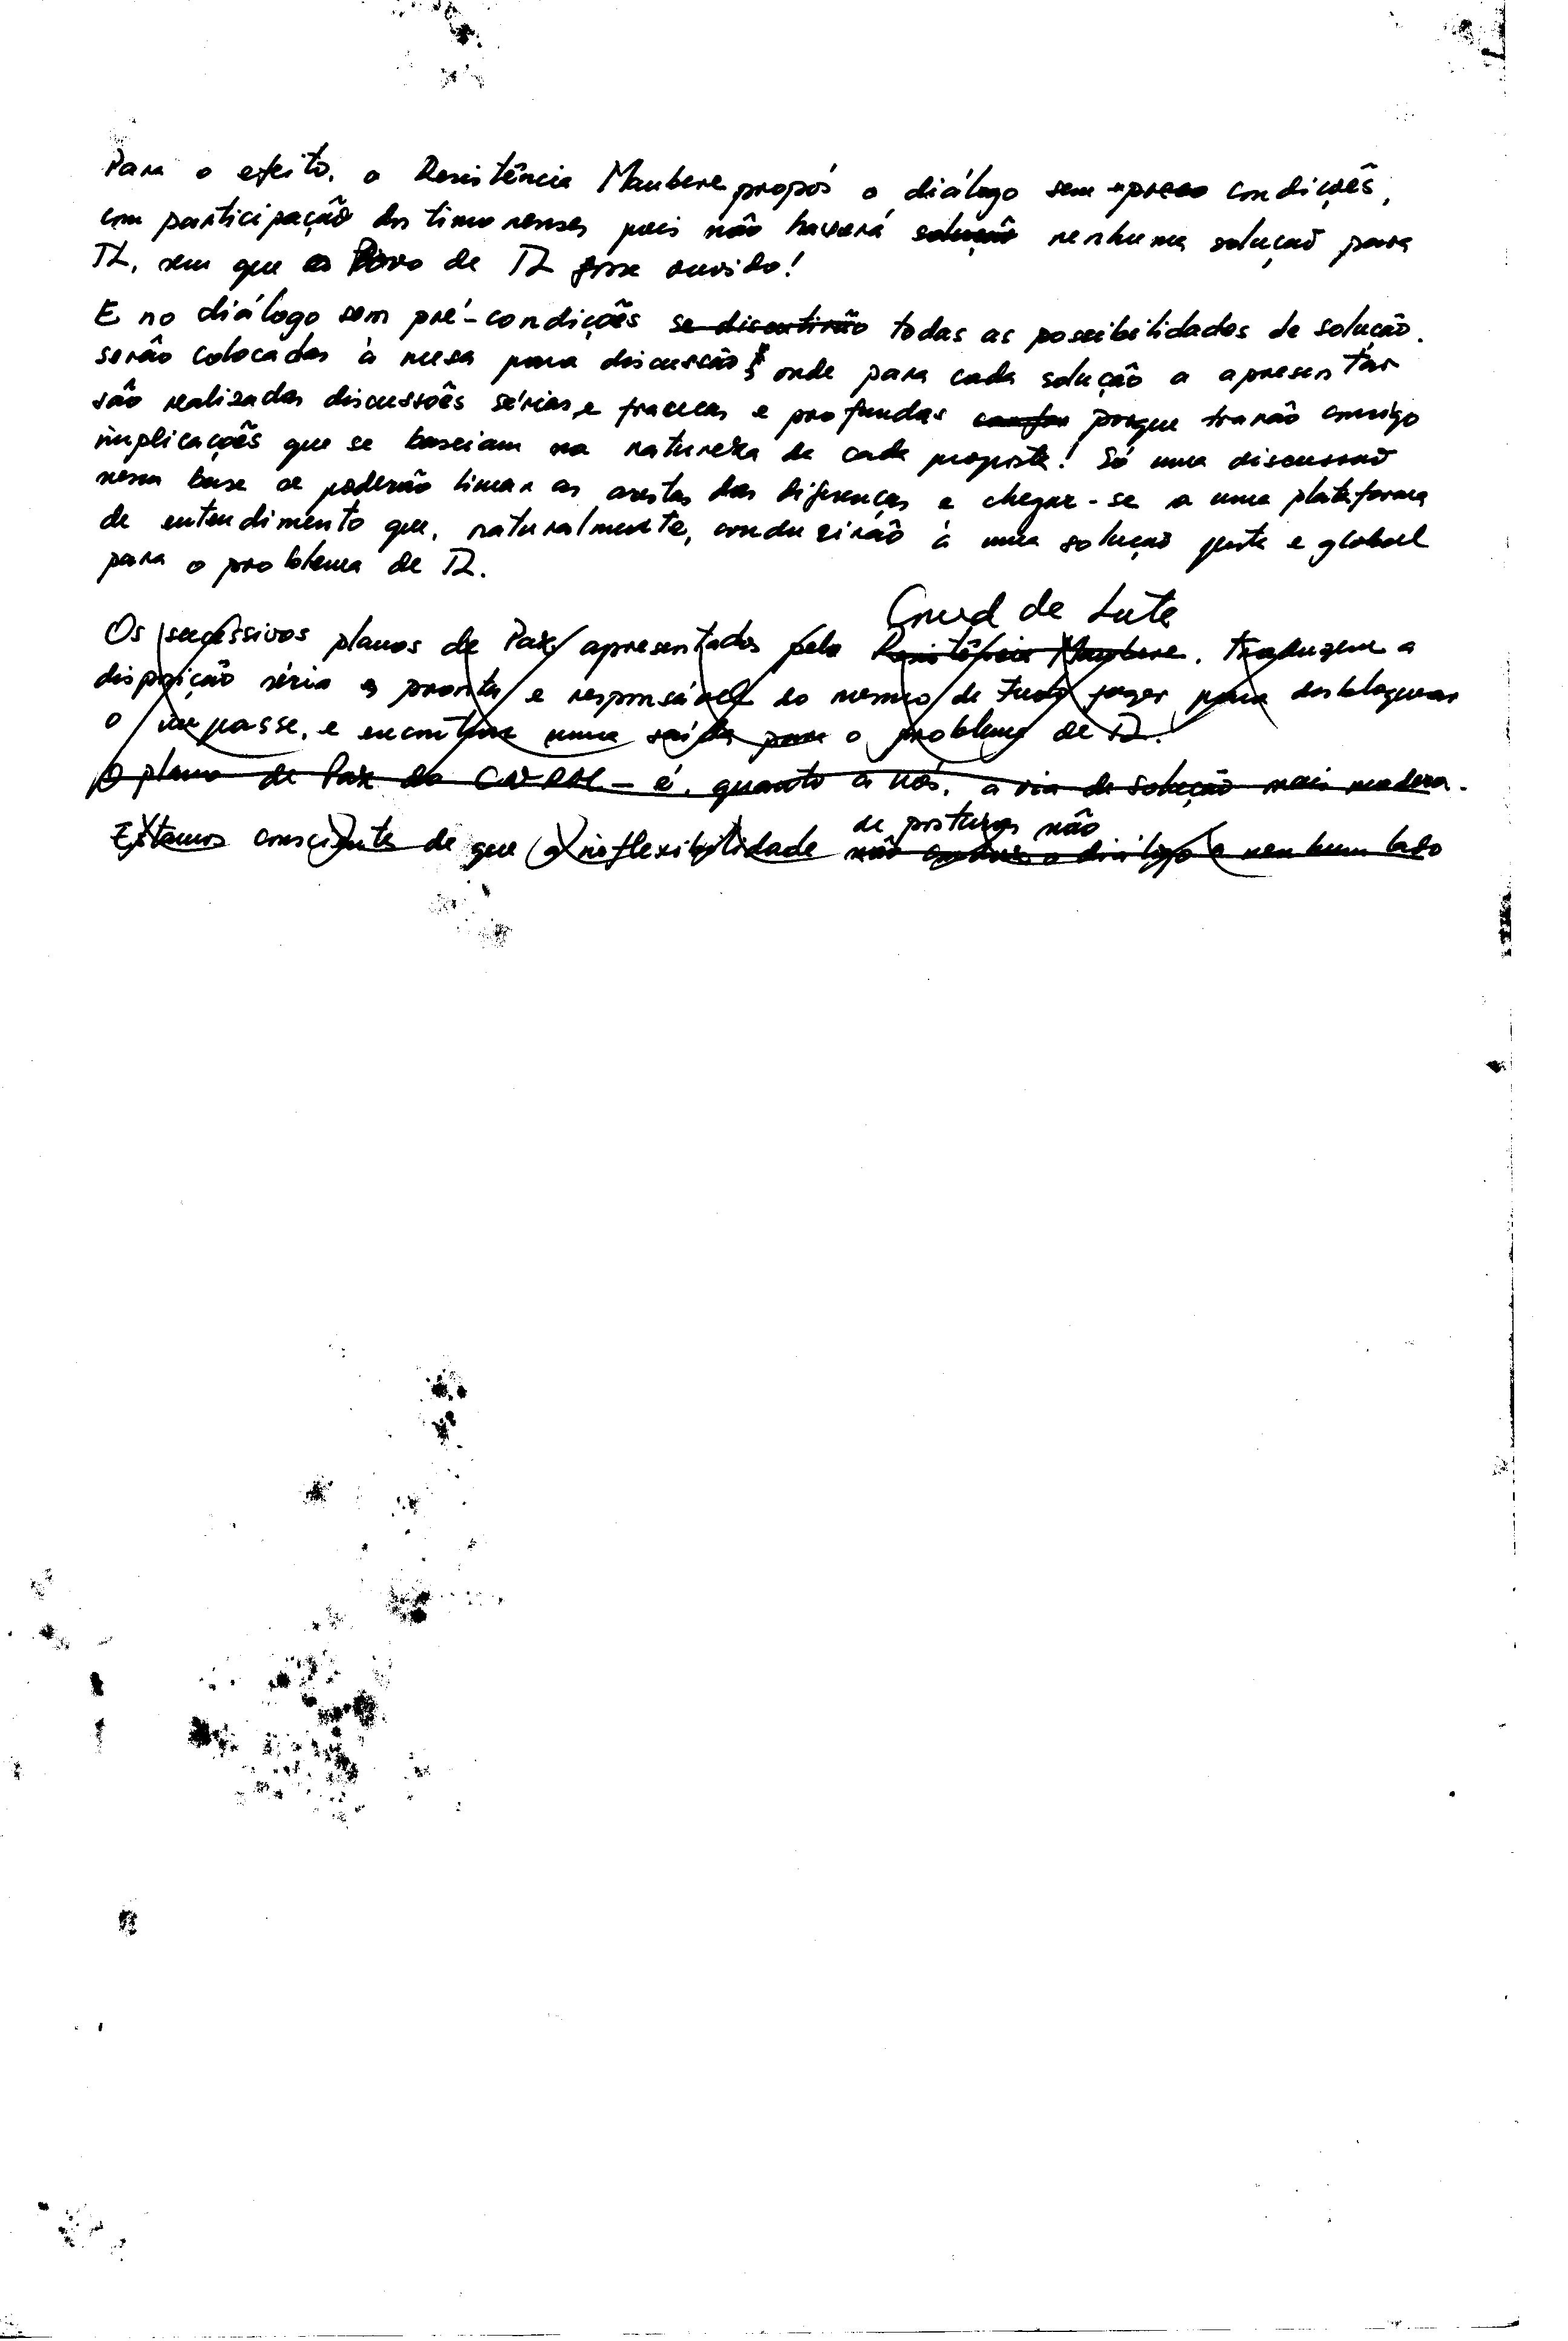 Para o efeito, a Resistência Maubere propós o diálogo sem condições,
com participação dos timorenses pois não haverá solução nenhuma solução para
TL, sem que o Povo de TL fosse ouvido!
E no diálogo sem pré-condições se discutirão todas as possibilidades de solução.
serão colocadas à mesa para discussão, onde para cada solução a apresentar
são realizadas discussões sérias e francas e profundas porque trarão consigo
implicações que se baseiam na natureza de cada proposta! Só uma discussão
nessa base se poderão limar as arestas das diferenças e chegar-se a uma plataforma
de entendimento que, naturalmente, conduzirão à uma solução justa e global
para o problema de TL.
Cnsel de Luta
Os sucessivos planos de Paz apresentados pelo Resistência Maubere, traduzem a
disposição séria e pronta e responsável do mesmo de tudo fazer para desbloquear
o impasse, e encontrar uma saída para o problema de TL.
O plano de Paz do CNRM - é, quanto a nós, a via de solução mais madera.
de posturas não
Estamos consciente de que a inflexibilidade não o diálogo a nenhum lado